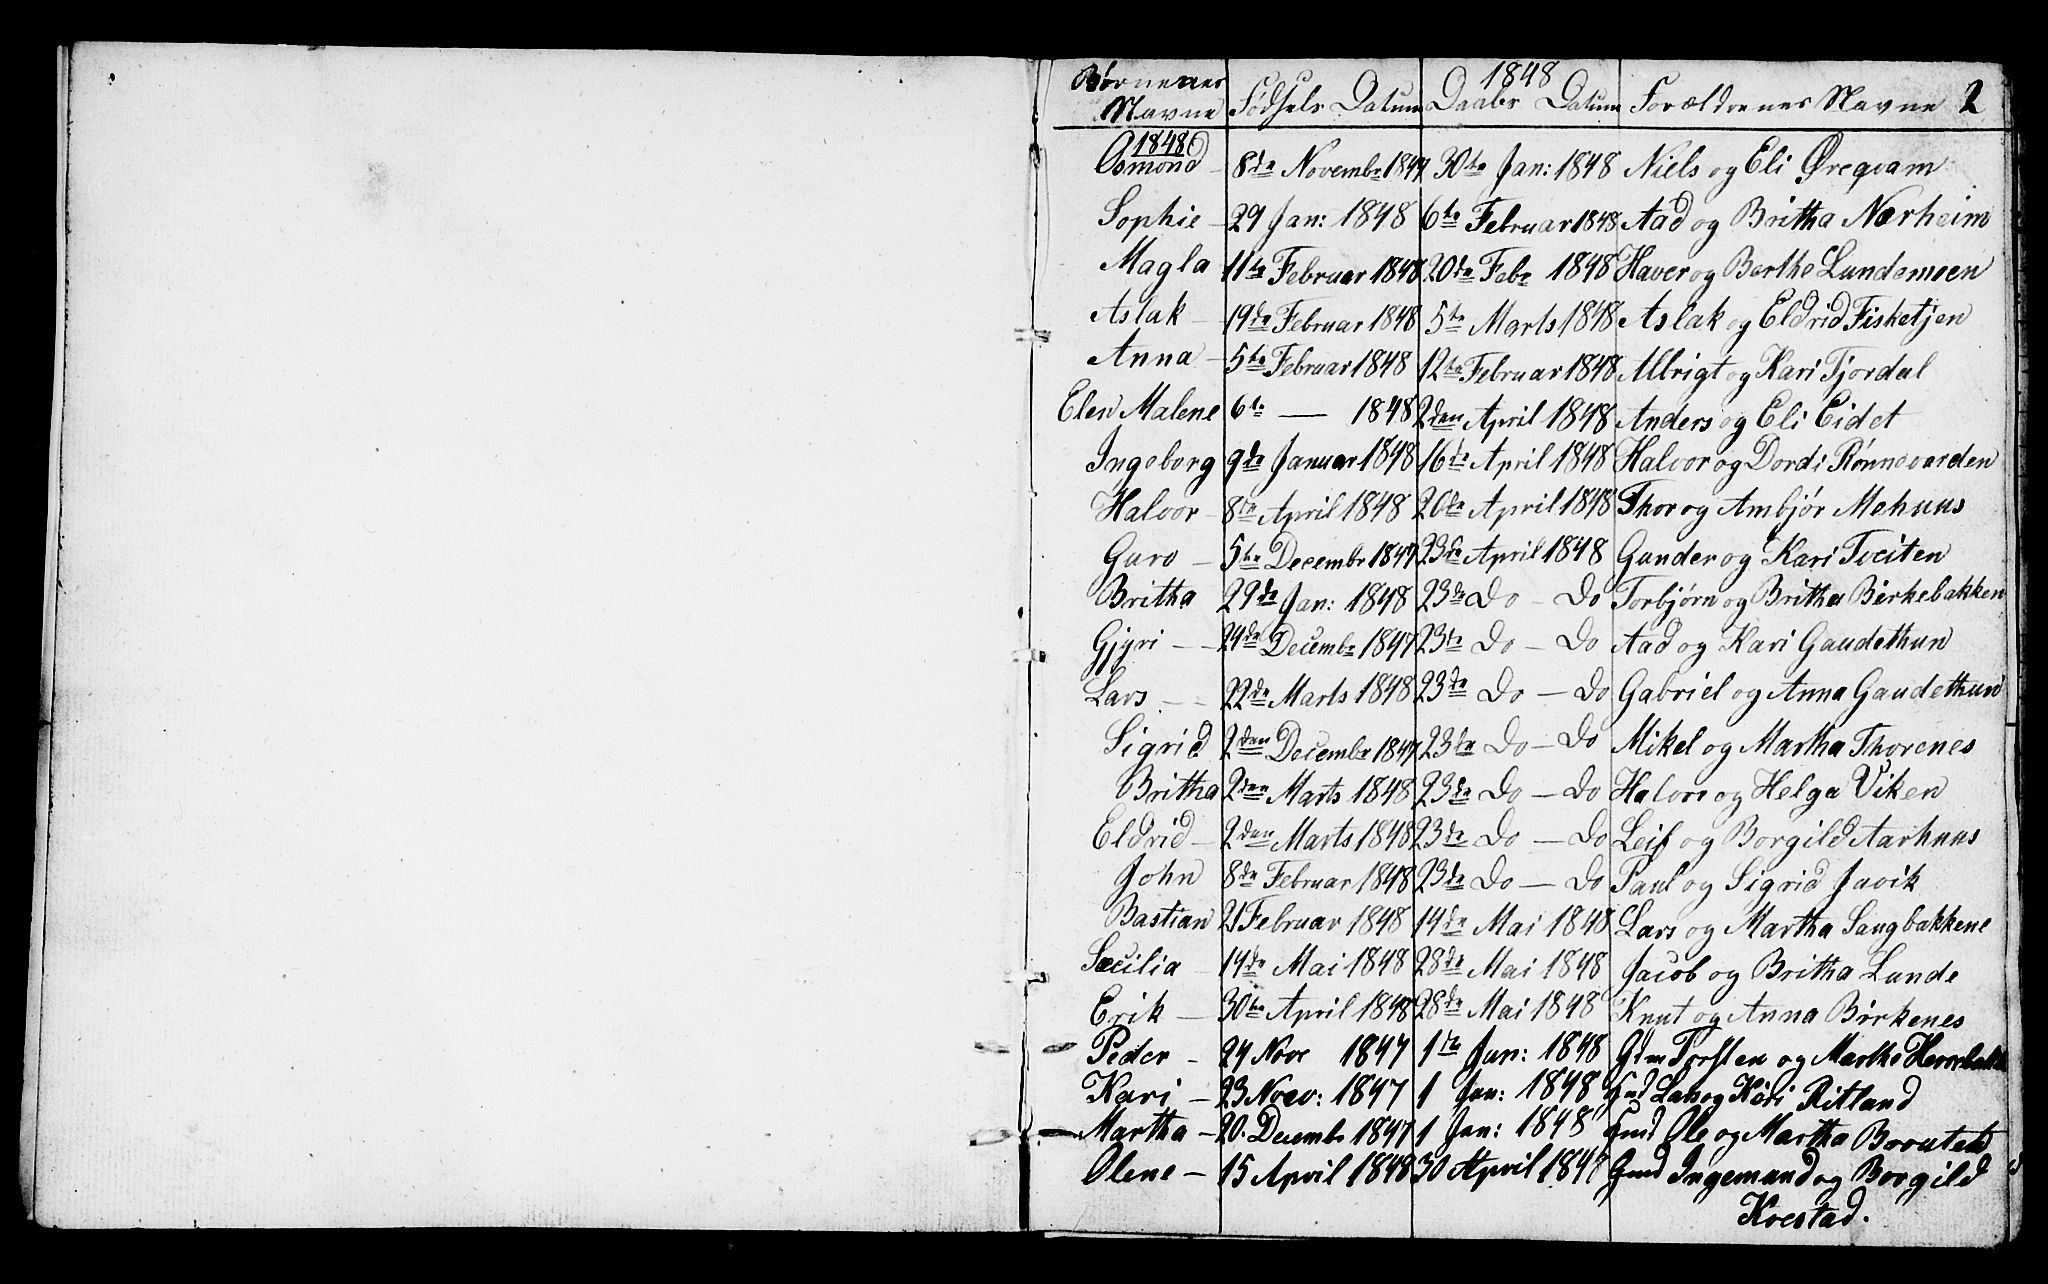 1848
Børnenes Navne Fødsels Datum Daabs Datum Forældrenes Navne 2
1848
Osmond - 8de Novembr 1847 30te Jan: 1848 Niels og Eli Øreqvam
Sophie - 29 Jan: 1848 6te Februar 1848 Aad og Britha Nærheim
Magla 11te Februar 1848 20de Febr 1848 Haver og Berthe Lundemoen
Aslak - 19de Februar 1848 5te Marts 1848 Aslak og Eldrid Fisketjen
Anna - 5te Februar 1848 12te Februar 1848 Albrigt og Kari Tjordal
Elen Malene 6te — 1848 2den April 1848 Anders og Eli Eidet
Ingeborg 9de Januar 1848 16de April 1848 Halvor og Dordi Rønnevarden
Halvor - 8de April 1848 20de April 1848 Thor og Ambjør Mehuus
Guro - 5te Decembr 1847 23de April 1848 Gunder og Kari Tveiten
Britha 29de Jan: 1848 23de Do - Do Torbjørn og Britha Birkebakken
Gjyri - - 24de Decembr 1847 23de Do - Do Aad og Kari Gaudethun
Lars - - 22de Marts 1848 23de Do - Do Gabriel og Anna Gaudethun
Sigrid 2den Decembr 1847 23de Do - Do Mikel og Martha Thorenes
Britha 2den Marts 1848 23de Do - Do Halvor og Helga Viken
Eldrid - 2den Marts 1848 23de Do - Do Leif og Borgild Aarhuus
John 8de Februar 1848 23de Do - Do Paul og Sigrid Juvik
Bastian 21 Februar 1848 14de Mai 1848 Lars og Martha Sangbakkene
Sæcilia - 14de Mai 1848 28de Mai 1848 Jacob og Britha Lunde
Erik - 30te April 1848 28de Mai 1848 Knut og Anna Birkenes
Peder - 24 Novr 1847 1te Jan: 1848 Gdm Torsten og Marthe
Kari - 23 Novr: 1847 1 Jan: 1848 Gmd Lars og Kari Ritland
Martha - 20. Decembr 1847 1 Jan: 1848 Gmd Ole og Martha
Olene - 15 April 1848 30 April 1848 Gmd Ingemund og Borgild
Kvestad.